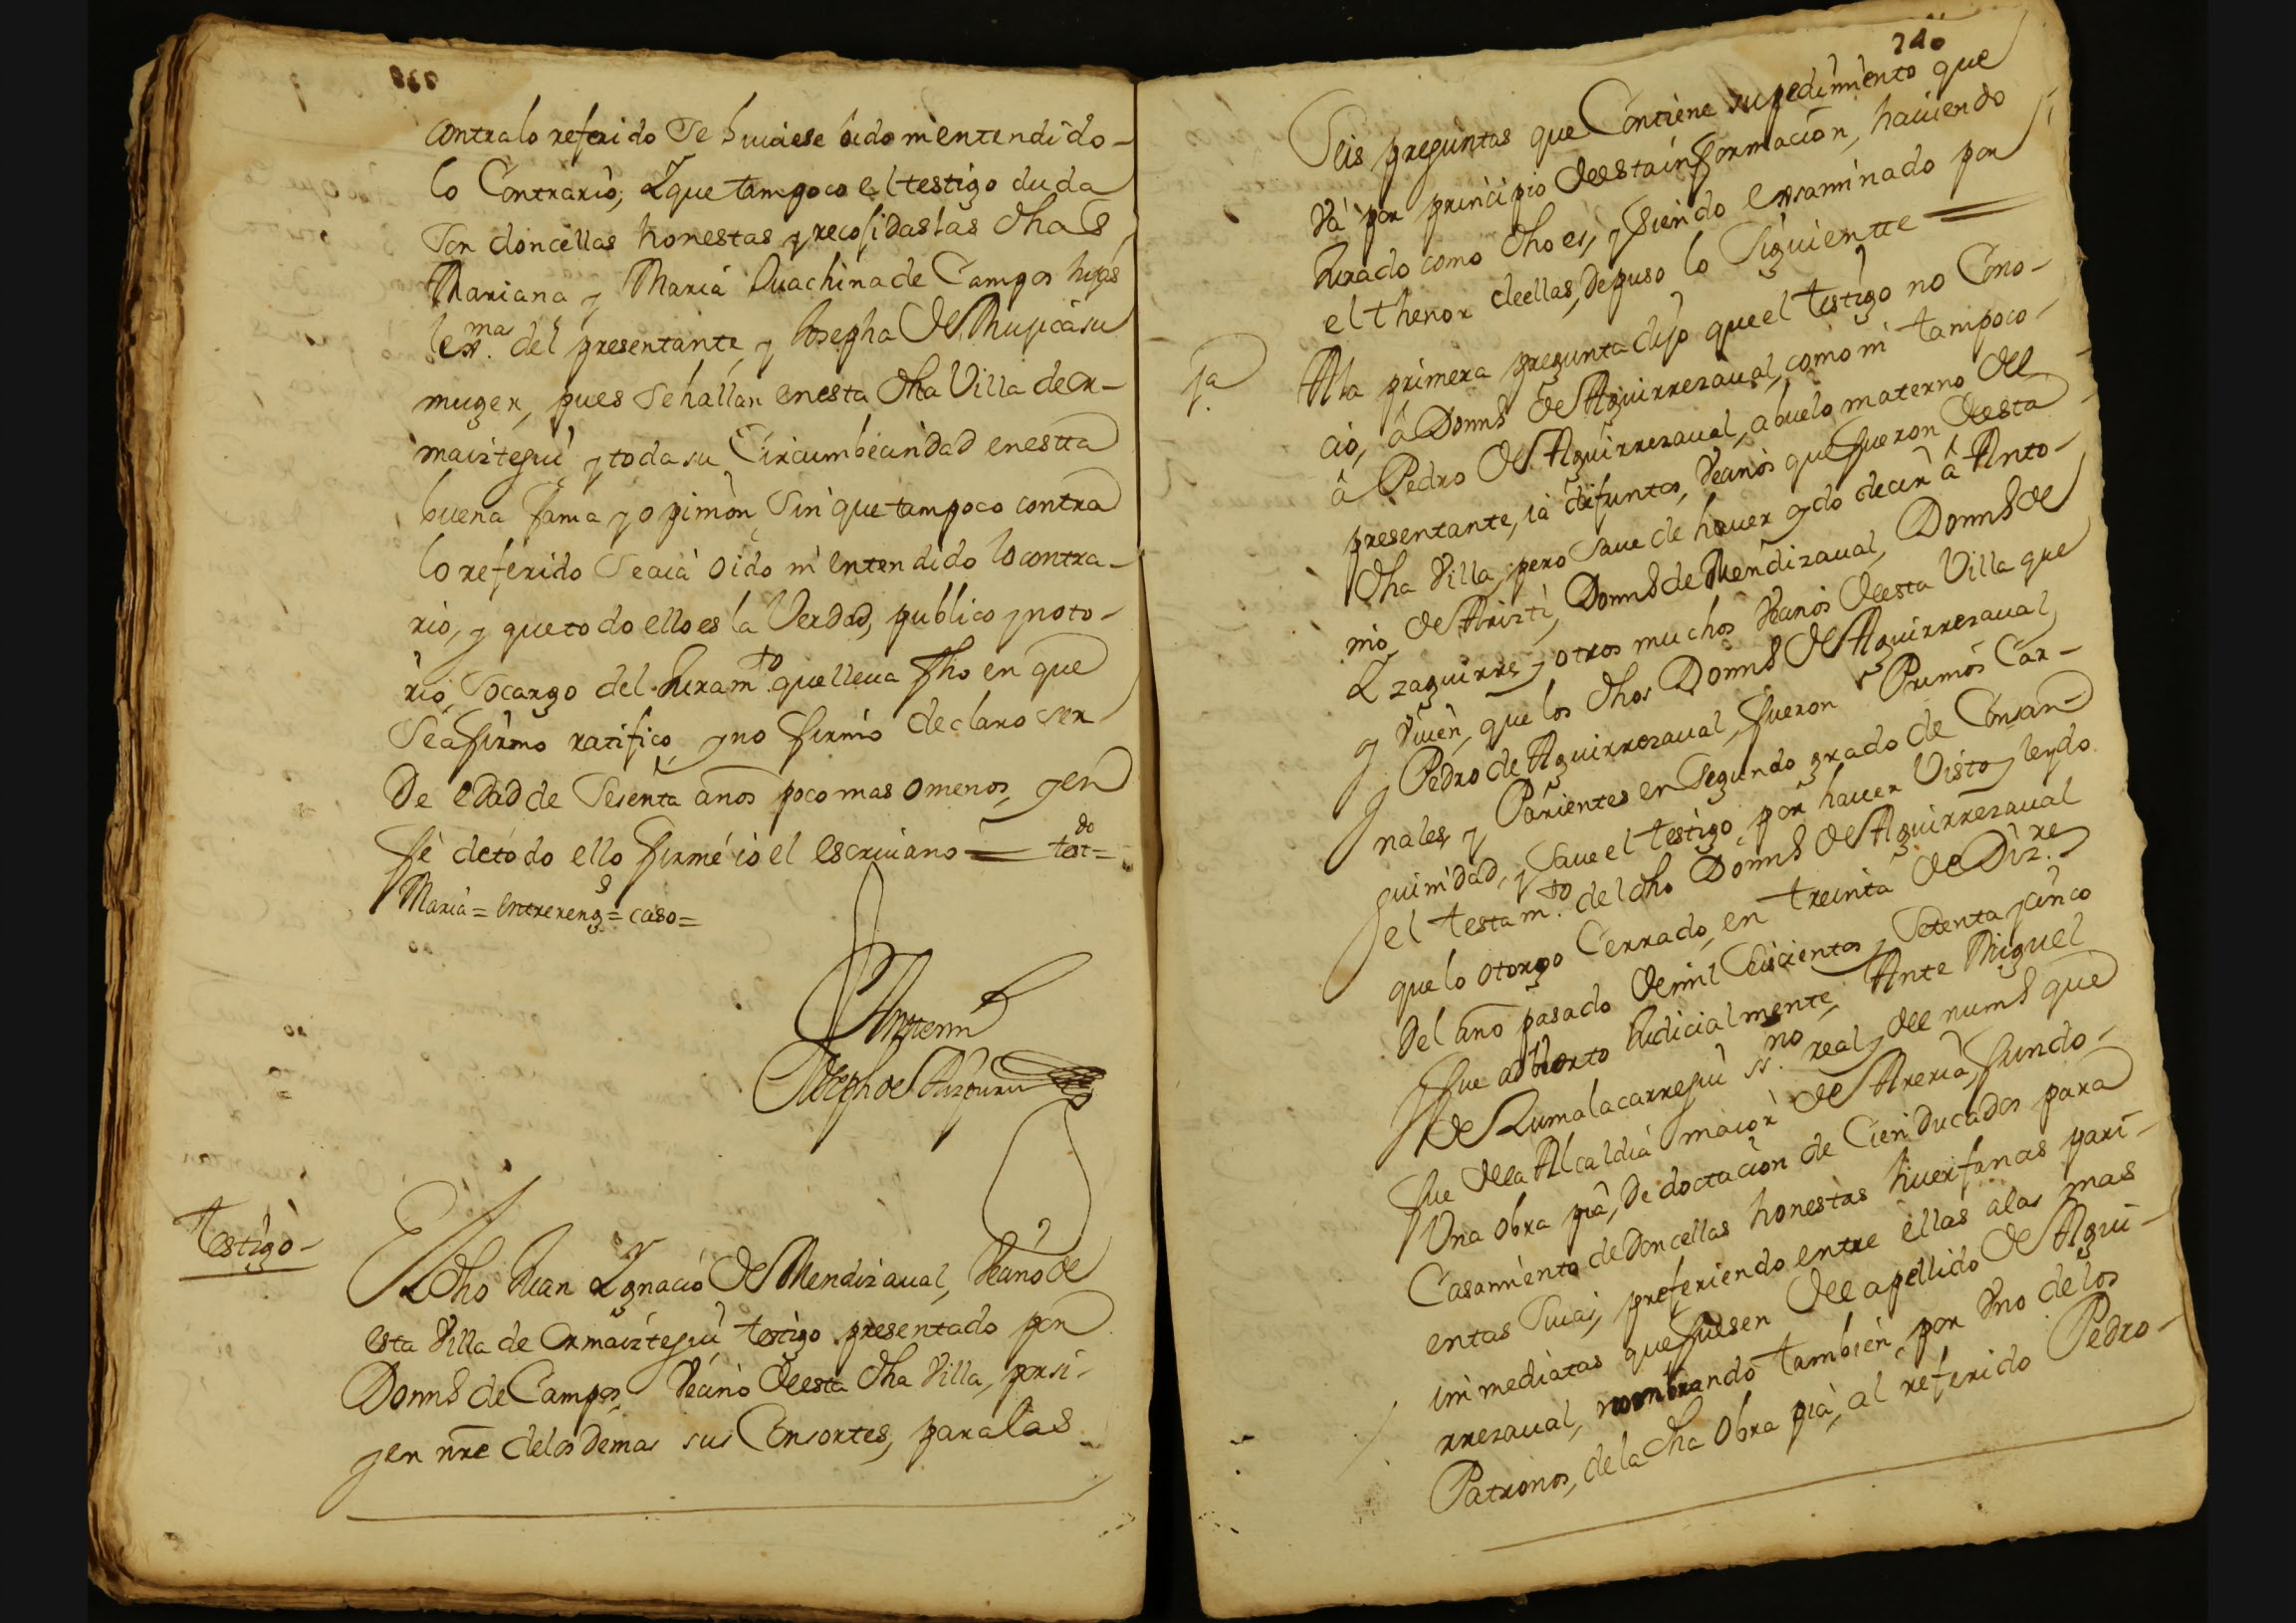 contralo referido se huuiese oido ni entendido-
lo Contrario, Y que tampoco el testigo duda
son doncellas honestas y recojidas las dhas
Mariana y Maria Juachina de Campos hijas
lex.ma del presentante, y Josepha de Mujica su
muger, pues se hallan en esta dha Villa de Or-
maiztegui y toda su Circumbecindad en estta
buena fama y opinion, sin que tampoco contra
lo referido se aia oido ni entendido lo contra-
rio, y que todo ello es la Verdad, publico y noto-
rio, socargo del Juram.to que lleua fho en que
se afirmo ratifico, y no firmó declaro ser
De edad de sesenta años poco mas o menos, y en
feè de todo ello firmé io el escriuano = test.do =
Maria = Entrereng.s = caso =
Antemi
Joseph de Aizpuru
Testigo-
El dho Juan Ygnacio de Mendizaual, Vecino de
esta Villa de Ormaiztegui, testigo presentado por
Domis de Campos, Vecino de esta dha Villa, por si-
y en nre de los demas sus Consortes, para las
240
Seis preguntas que Contiene su pedimiento que
Vá por principio de esta informacion, hauiendo
Jurado como dho es, y siendo examinado por
el thenor de ellas, depuso lo siguientte =
1.a
A la primera pregunta dijo que el testigo no Cono-
cio, â Domis de Aguirrezaual, como ni tampoco-
â Pedro de Aguirrezaual, abuelo materno del
presentante, ia difuntos, Vecinos que fueron de esta
dha Villa, pero saue de hauer oydo decir â Anto-
nio de Arizti, Domis de Mendizaual, Domis de
Yzaguirre, y otros muchos Vecinos de esta Villa que
y Viuen, que los dhos Domis de Aguirrezaual
y Pedro de Aguirrezaual, fueron Primos Car-
nales, y Parientes en segundo grado de Consan-
guinidad, y saue el testigo, por hauer Visto y leydo
el testam.to del dho Domis de Aguirrezaual
que lo otorgo Cerrado, en treinta de Diz.re
del año pasado de mil seiscientos y setenta y cinco
y fue abierto Judicialmente, Ante Miguel
de Zumalacarregui ss.no real y del nums que
fue de la Alcaldia maior de Areria, fundo-
Una obra pia, de doctacion de Cien Ducados para
Casamiento de Doncellas honestas huerfanas pari-
entas suias, preferiendo entre ellas a las mas
inmediatas que fuesen del apellido de Agui-
rrezaual, nombrando tambien por Vno de los
Patronos, de la dha Obra pia, al referido Pedro-